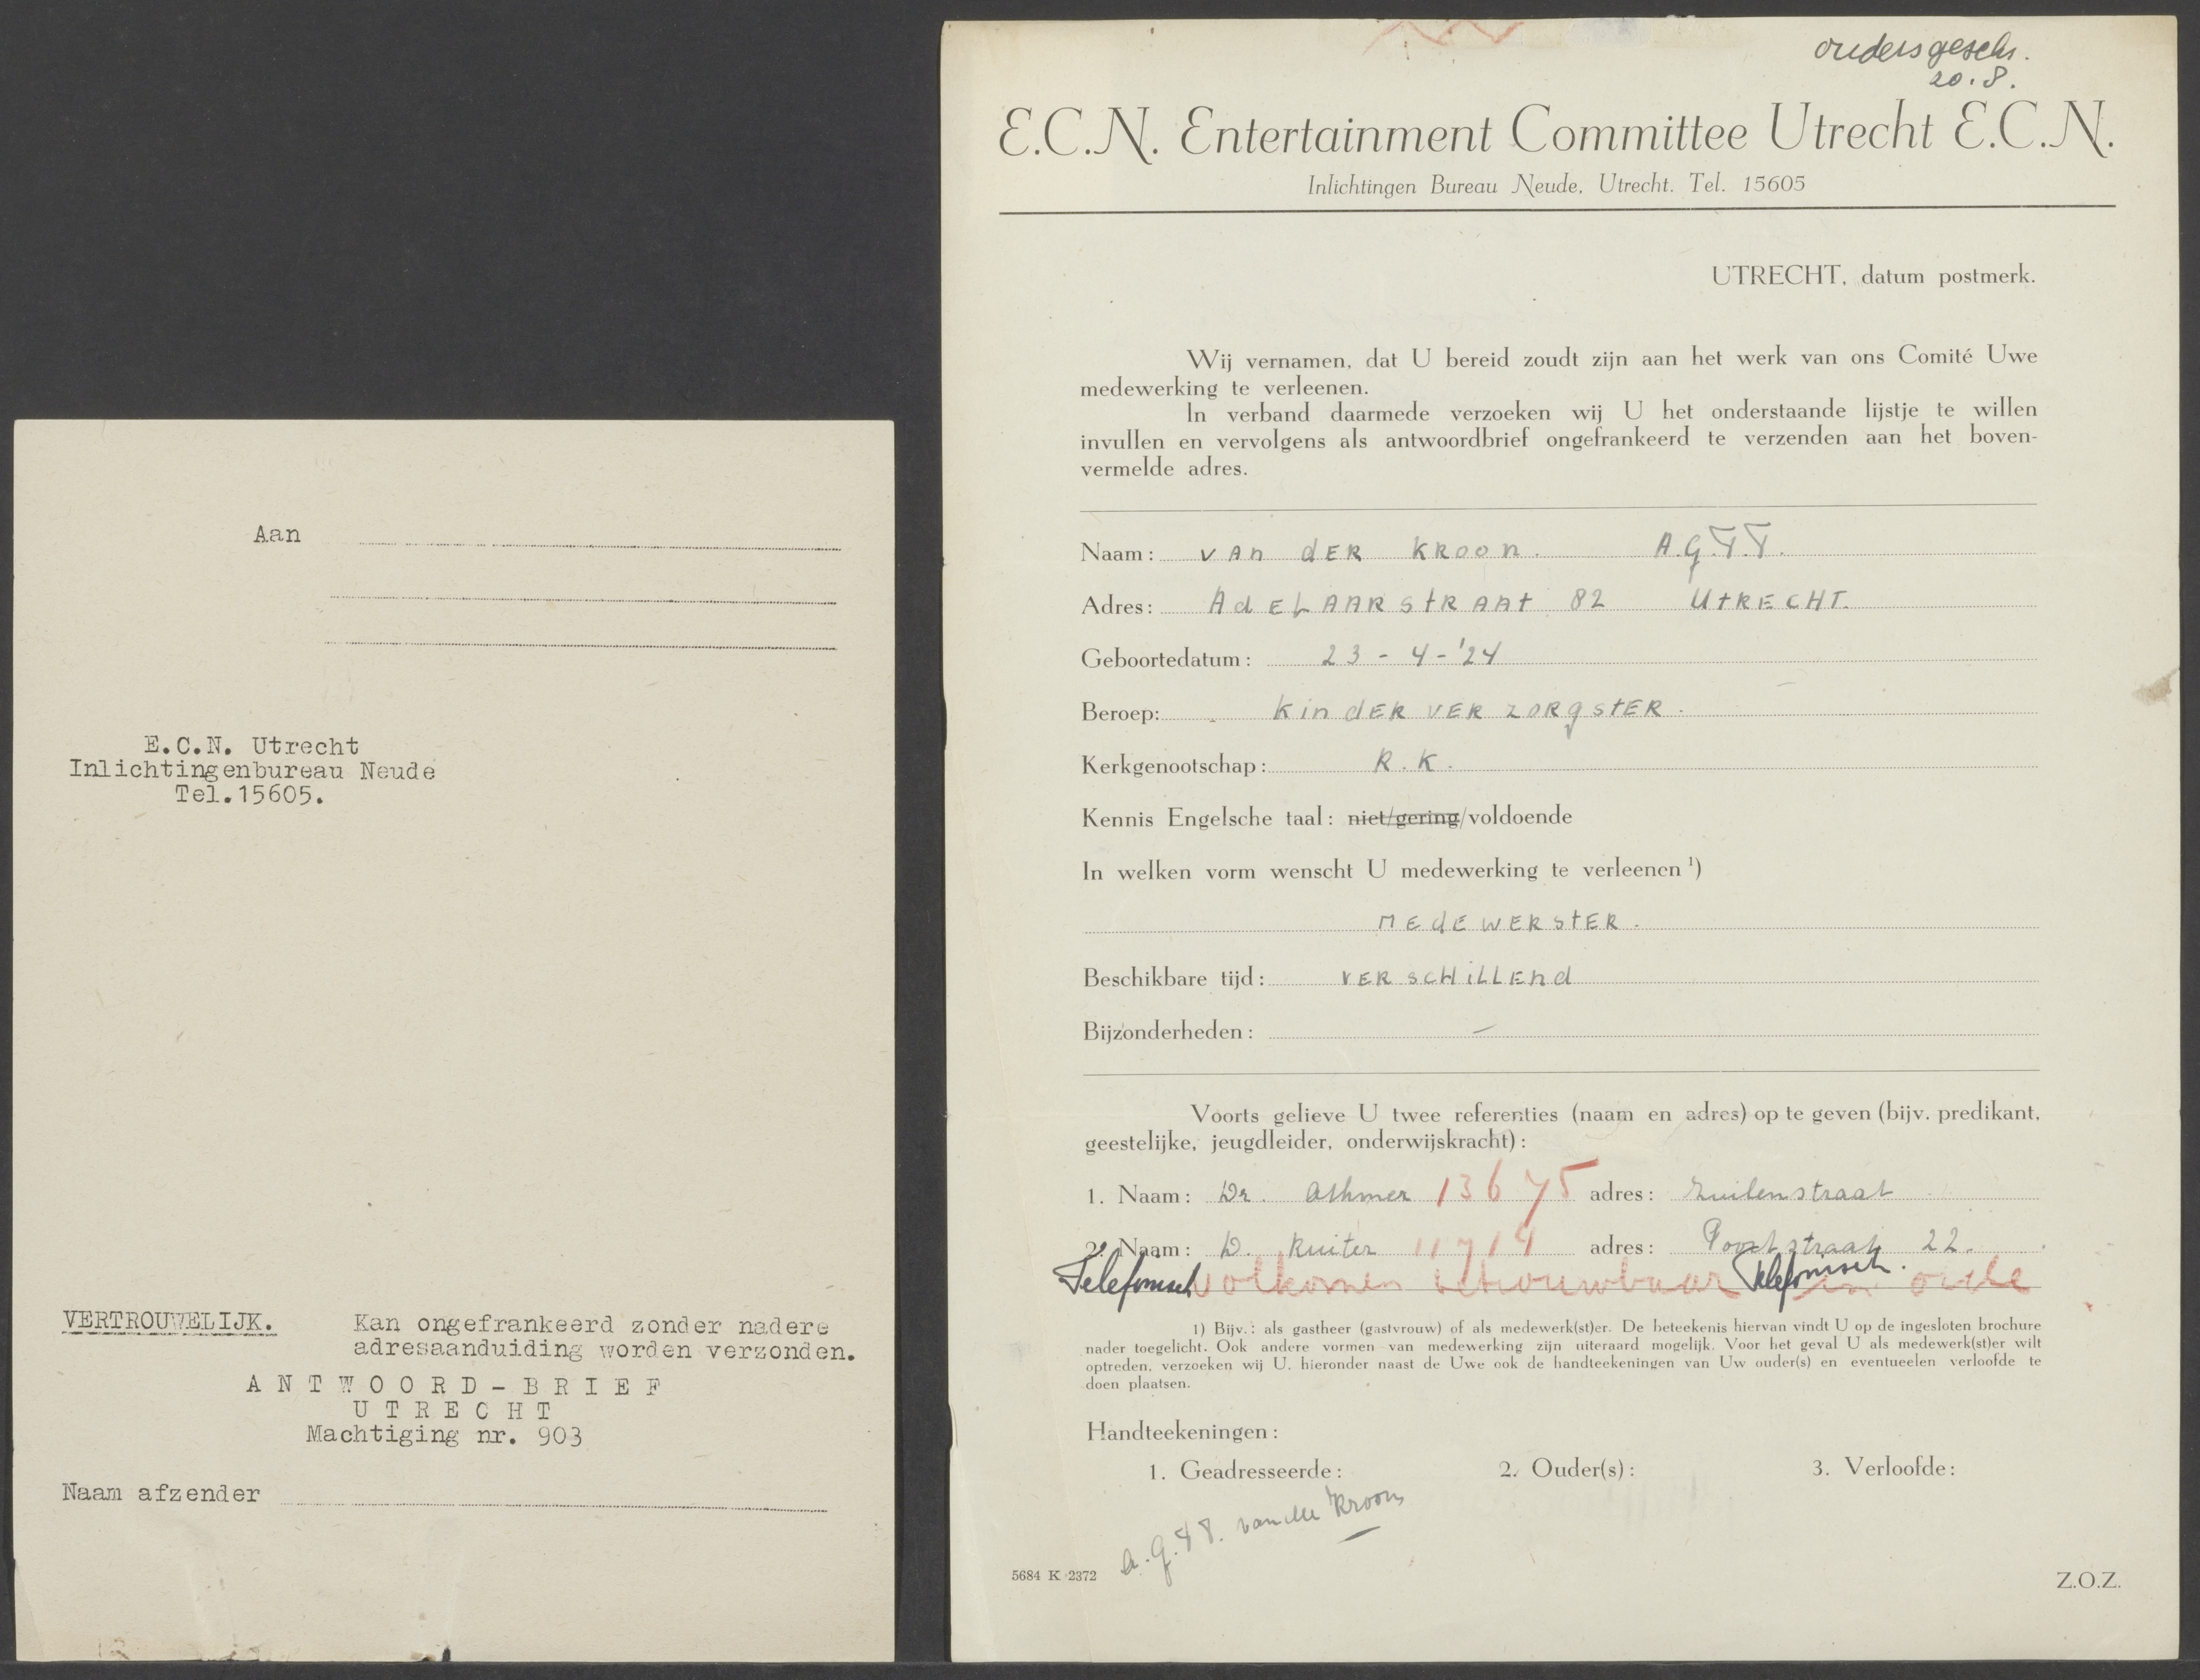 Aan
E.C.N. Utrecht
Inlichtingenbureau Neude
Tel.15605.
VERTROUWELIJK. Kan ongefrankeerd zonder nadere
adresaanduiding worden verzonden.
ANTWOORD-BRIEF
UTRECHT
Machtiging nr. 903
Naam afzender
oudersgeschr.
20.8.
E.C.N. Entertainment Committee Utrecht E.C.N.
Inlichtingen Bureau Neude, Utrecht. Tel. 15605
UTRECHT, datum postmerk.
Wij vernamen, dat U bereid zoudt zijn aan het werk van ons Comité Uwe
medewerking te verleenen.
In verband daarmede verzoeken wij U het onderstaande lijstje te willen
invullen en vervolgens als antwoordbrief ongefrankeerd te verzenden aan het boven-
vermelde adres.
Naam: van der Kroon. A.G.T.T.
Adres: Adelaarstraat 82 Utrecht.
Geboortedatum: 23-4-'24
Beroep: Kinderverzorgster.
Kerkgenootschap: R.K.
Kennis Engelsche taal: niet/gering/voldoende
In welken vorm wenscht U medewerking te verleenen ¹)
medewerster.
Beschikbare tijd: verschillend
Bijzonderheden: —
Voorts gelieve U twee referenties (naam en adres) op te geven (bijv. predikant,
geestelijke, jeugdleider, onderwijskracht):
1. Naam: Dr. Athmer 13675 adres: Zuilenstraat
2. Naam: D. Ruiter 11714 adres: Poortstraat 22.
Telefonisch volkomen betrouwbaar Telefonisch. in orde
1) Bijv.: als gastheer (gastvrouw) of als medewerk(st)er. De beteekenis hiervan vindt U op de ingesloten brochure
nader toegelicht. Ook andere vormen van medewerking zijn uiteraard mogelijk. Voor het geval U als medewerk(st)er wilt
optreden, verzoeken wij U, hieronder naast de Uwe ook de handteekeningen van Uw ouder(s) en eventueelen verloofde te
doen plaatsen.
Handteekeningen:
1. Geadresseerde: 2. Ouder(s): 3. Verloofde:
A.G.T.T. van der Kroon
5684 K 2372 Z.O.Z.